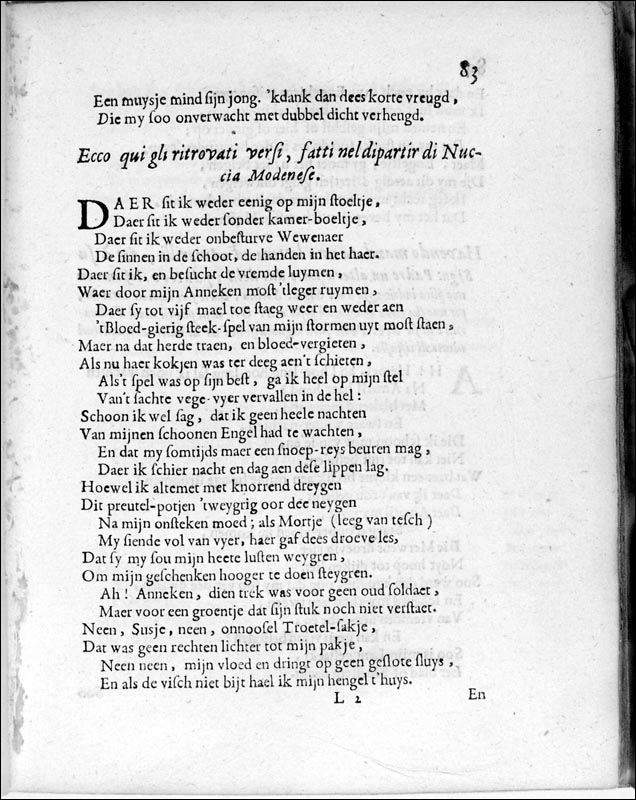 83
Een muysje mind sijn jong. 'kdank dan dees korte vreugd,
Die my soo onverwacht met dubbel dicht verhengd.
Ecco qui gli ritrovati versi, fatti nel dipartir di Nuc-
cia Modenese.
DAER sit ik weder eenig op mijn stoeltje,
Daer sit ik weder sonder kamer-boeltje,
Daer sit ik weder onbesturve Wewenaer
De sinnen in de schoot, de handen in het haer.
Daer sit ik, en besucht de vremde luymen,
Waer door mijn Anneken most 'tleger ruymen,
Daer sy tot vijf mael toe staeg weer en weder aen
'tBloed-gierig steek-spel van mijn stormen uyt most staen,
Maer na dat herde traen, en bloed-vergieten,
Als nu haer kokjen was ter deeg aen't schieten,
Als't spel was op sijn best, ga ik heel op mijn stel
Van't sachte vege-vyer vervallen in de hel:
Schoon ik wel sag, dat ik geen heele nachten
Van mijnen schoonen Engel had te wachten,
En dat my somtijds maer een snoep-reys beuren mag,
Daer ik schier nacht en dag aen dese lippen lag.
Hoewel ik altemet met knorrend dreygen
Dit preutel-potjen 'tweygrig oor dee neygen
Na mijn onsteken moed; als Mortje (leeg van tesch)
My siende vol van vyer, haer gaf dees droeve les,
Dat sy my sou mijn heete lusten weygren,
Om mijn geschenken hooger te doen steygren.
Ah! Anneken, dien trek was voor geen oud soldaet,
Maer voor een groentje dat sijn stuk noch niet verstaet.
Neen, Susje, neen, onnoosel Troetel-sakje,
Dat was geen rechten lichter tot mijn pakje,
Neen neen, mijn vloed en dringt op geen geslote sluys,
En als de visch niet bijt hael ik mijn hengel t'huys.
L 2
En